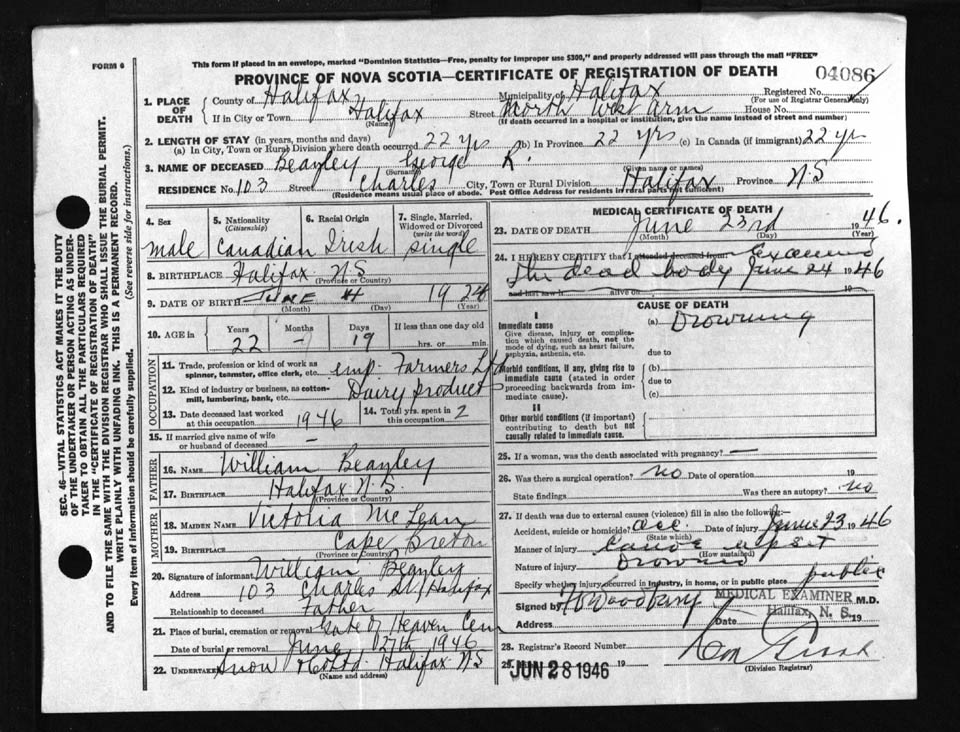 FORM 6
This form if placed in an envelope, marked "Dominion Statistics—Free, penalty for improper use $300," and properly addressed will pass through the mail "FREE"
PROVINCE OF NOVA SCOTIA—CERTIFICATE OF REGISTRATION OF DEATH
04086
1. PLACE OF DEATH County of Halifax Municipality of Halifax Registered No. (For use of Registrar General only)
If in City or Town Halifax (Name) Street North West Arm House No.
(If death occurred in a hospital or institution, give the name instead of street and number)
2. LENGTH OF STAY (in years, months and days)
(a) In City, Town or Rural Division where death occurred 22 yrs (b) In Province 22 yrs (c) In Canada (if immigrant) 22 yr
3. NAME OF DECEASED Beazley George R.
(Surname) (Given name or names)
RESIDENCE No. 103 Street Charles City, Town or Rural Division Halifax Province N.S
(Residence means usual place of abode. Post Office Address for residents in rural parts not sufficient)
4. Sex male
5. Nationality (Citizenship) Canadian
6. Racial Origin Irish
7. Single, Married, Widowed or Divorced (write the word) single
8. BIRTHPLACE Halifax N.S
(Province or Country)
9. DATE OF BIRTH June 4 1924
(Month) (Day) (Year)
10. AGE in Years 22 Months - Days 19 If less than one day old hrs. or min.
OCCUPATION
11. Trade, profession or kind of work as spinner, teamster, office clerk, etc. emp. Farmers Ltd
12. Kind of industry or business, as cotton-mill, lumbering, bank, etc. Dairy product
13. Date deceased last worked at this occupation 1946
14. Total yrs. spent in this occupation 2
15. If married give name of wife or husband of deceased —
FATHER
16. NAME William Beazley
17. BIRTHPLACE Halifax N.S.
(Province or Country)
MOTHER
18. MAIDEN NAME Victoria McLean
19. BIRTHPLACE Cape Breton
(Province or Country)
20. Signature of informant William Beazley
Address 103 Charles St, Halifax
Relationship to deceased Father
21. Place of burial, cremation or removal Gate of Heaven Cem
Date of burial or removal June 27th 1946
22. UNDERTAKER Snow & Co Ltd. Halifax N.S
(Name and address)
MEDICAL CERTIFICATE OF DEATH
23. DATE OF DEATH June 23rd 1946.
(Month) (Day) (Year)
24. I HEREBY CERTIFY that I attended deceased from Examined
the dead body June 24 1946
and last saw h alive on 19
CAUSE OF DEATH
I
Immediate cause (a) Drowning
Give disease, injury or complication which caused death, not the mode of dying, such as heart failure, asphyxia, asthenia, etc.
due to
Morbid conditions, if any, giving rise to immediate cause (stated in order proceeding backwards from immediate cause).
(b)
due to
(c)
II
Other morbid conditions (if important) contributing to death but not causally related to immediate cause.
25. If a woman, was the death associated with pregnancy? —
26. Was there a surgical operation? no Date of operation 19
State findings Was there an autopsy? no
27. If death was due to external causes (violence) fill in also the following:
Accident, suicide or homicide? acc. Date of injury June 23 1946
(State which)
Manner of injury Canoe upset
(How sustained)
Nature of injury Drowned
Specify whether injury occurred in industry, in home, or in public place public
Signed by M.D.
MEDICAL EXAMINER
Halifax, N. S.
Address Date 19
28. Registrar's Record Number
29. JUN 28 1946 19
(Division Registrar)
SEC. 46—VITAL STATISTICS ACT MAKES IT THE DUTY
OF THE UNDERTAKER OR PERSON ACTING AS UNDERTAKER
TO OBTAIN ALL THE PARTICULARS REQUIRED
IN THE "CERTIFICATE OF REGISTRATION OF DEATH"
AND TO FILE THE SAME WITH THE DIVISION REGISTRAR WHO SHALL ISSUE THE BURIAL PERMIT.
WRITE PLAINLY WITH UNFADING INK. THIS IS A PERMANENT RECORD.
Every item of Information should be carefully supplied. (See reverse side for instructions.)